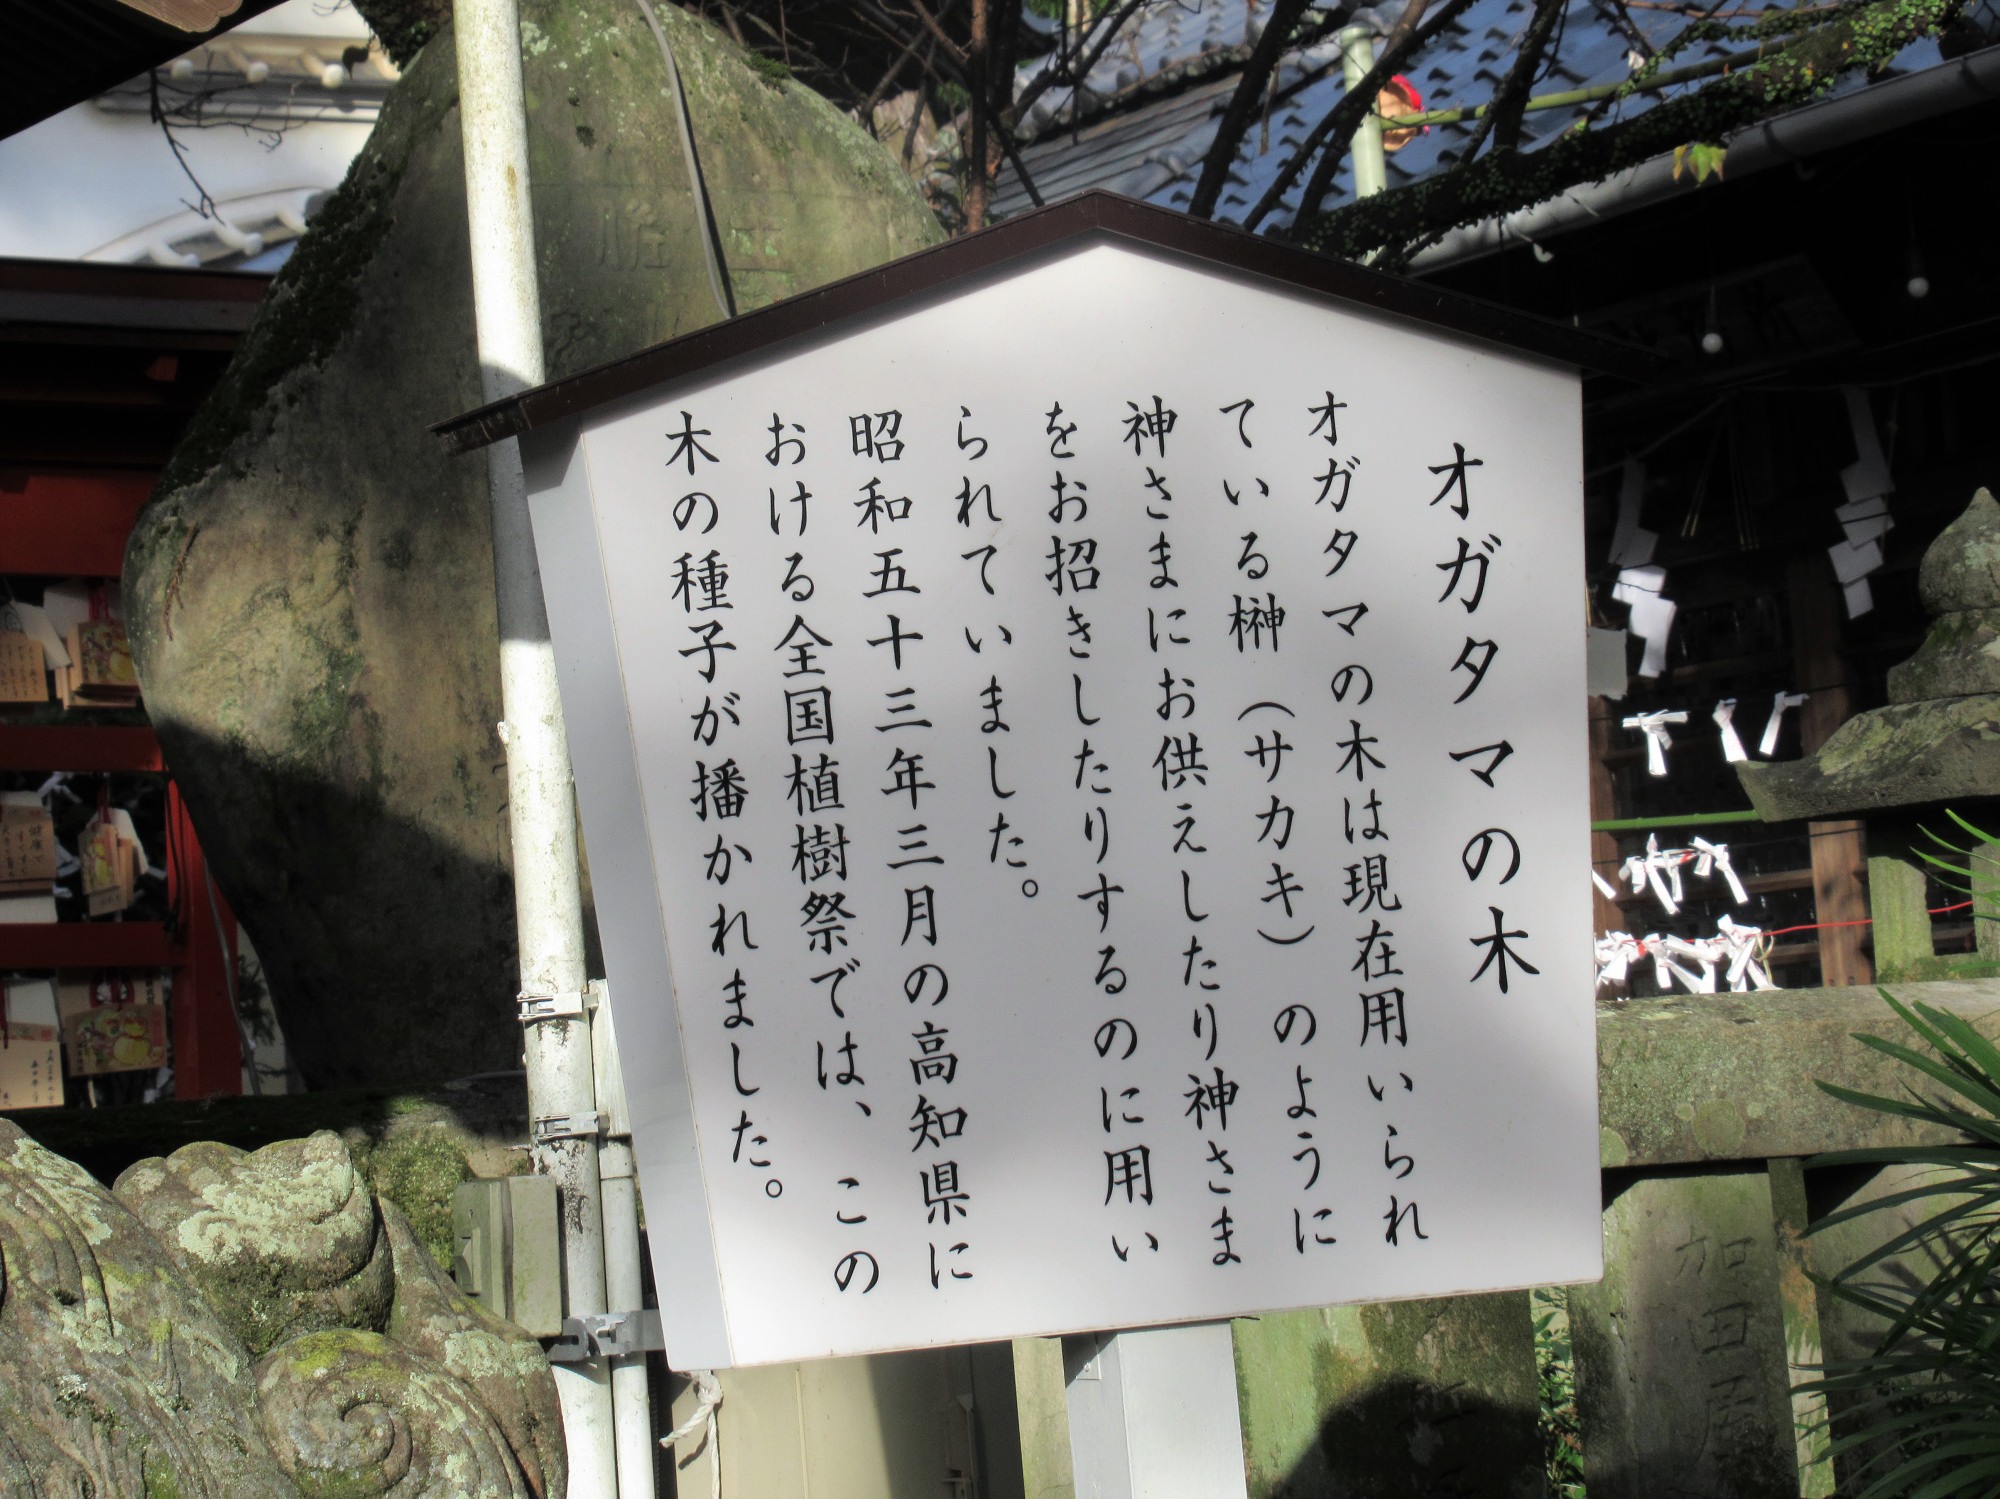 オガタマの木
オガタマの木は現在用いられ
ている榊（サカキ）のように
神さまにお供えしたり神さま
をお招きしたりするのに用い
られていました。
昭和五十三年三月の高知県に
おける全国植樹祭では、この
木の種子が播かれました。
加田居